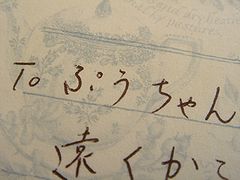 To ぷうちゃん
遠くかこ